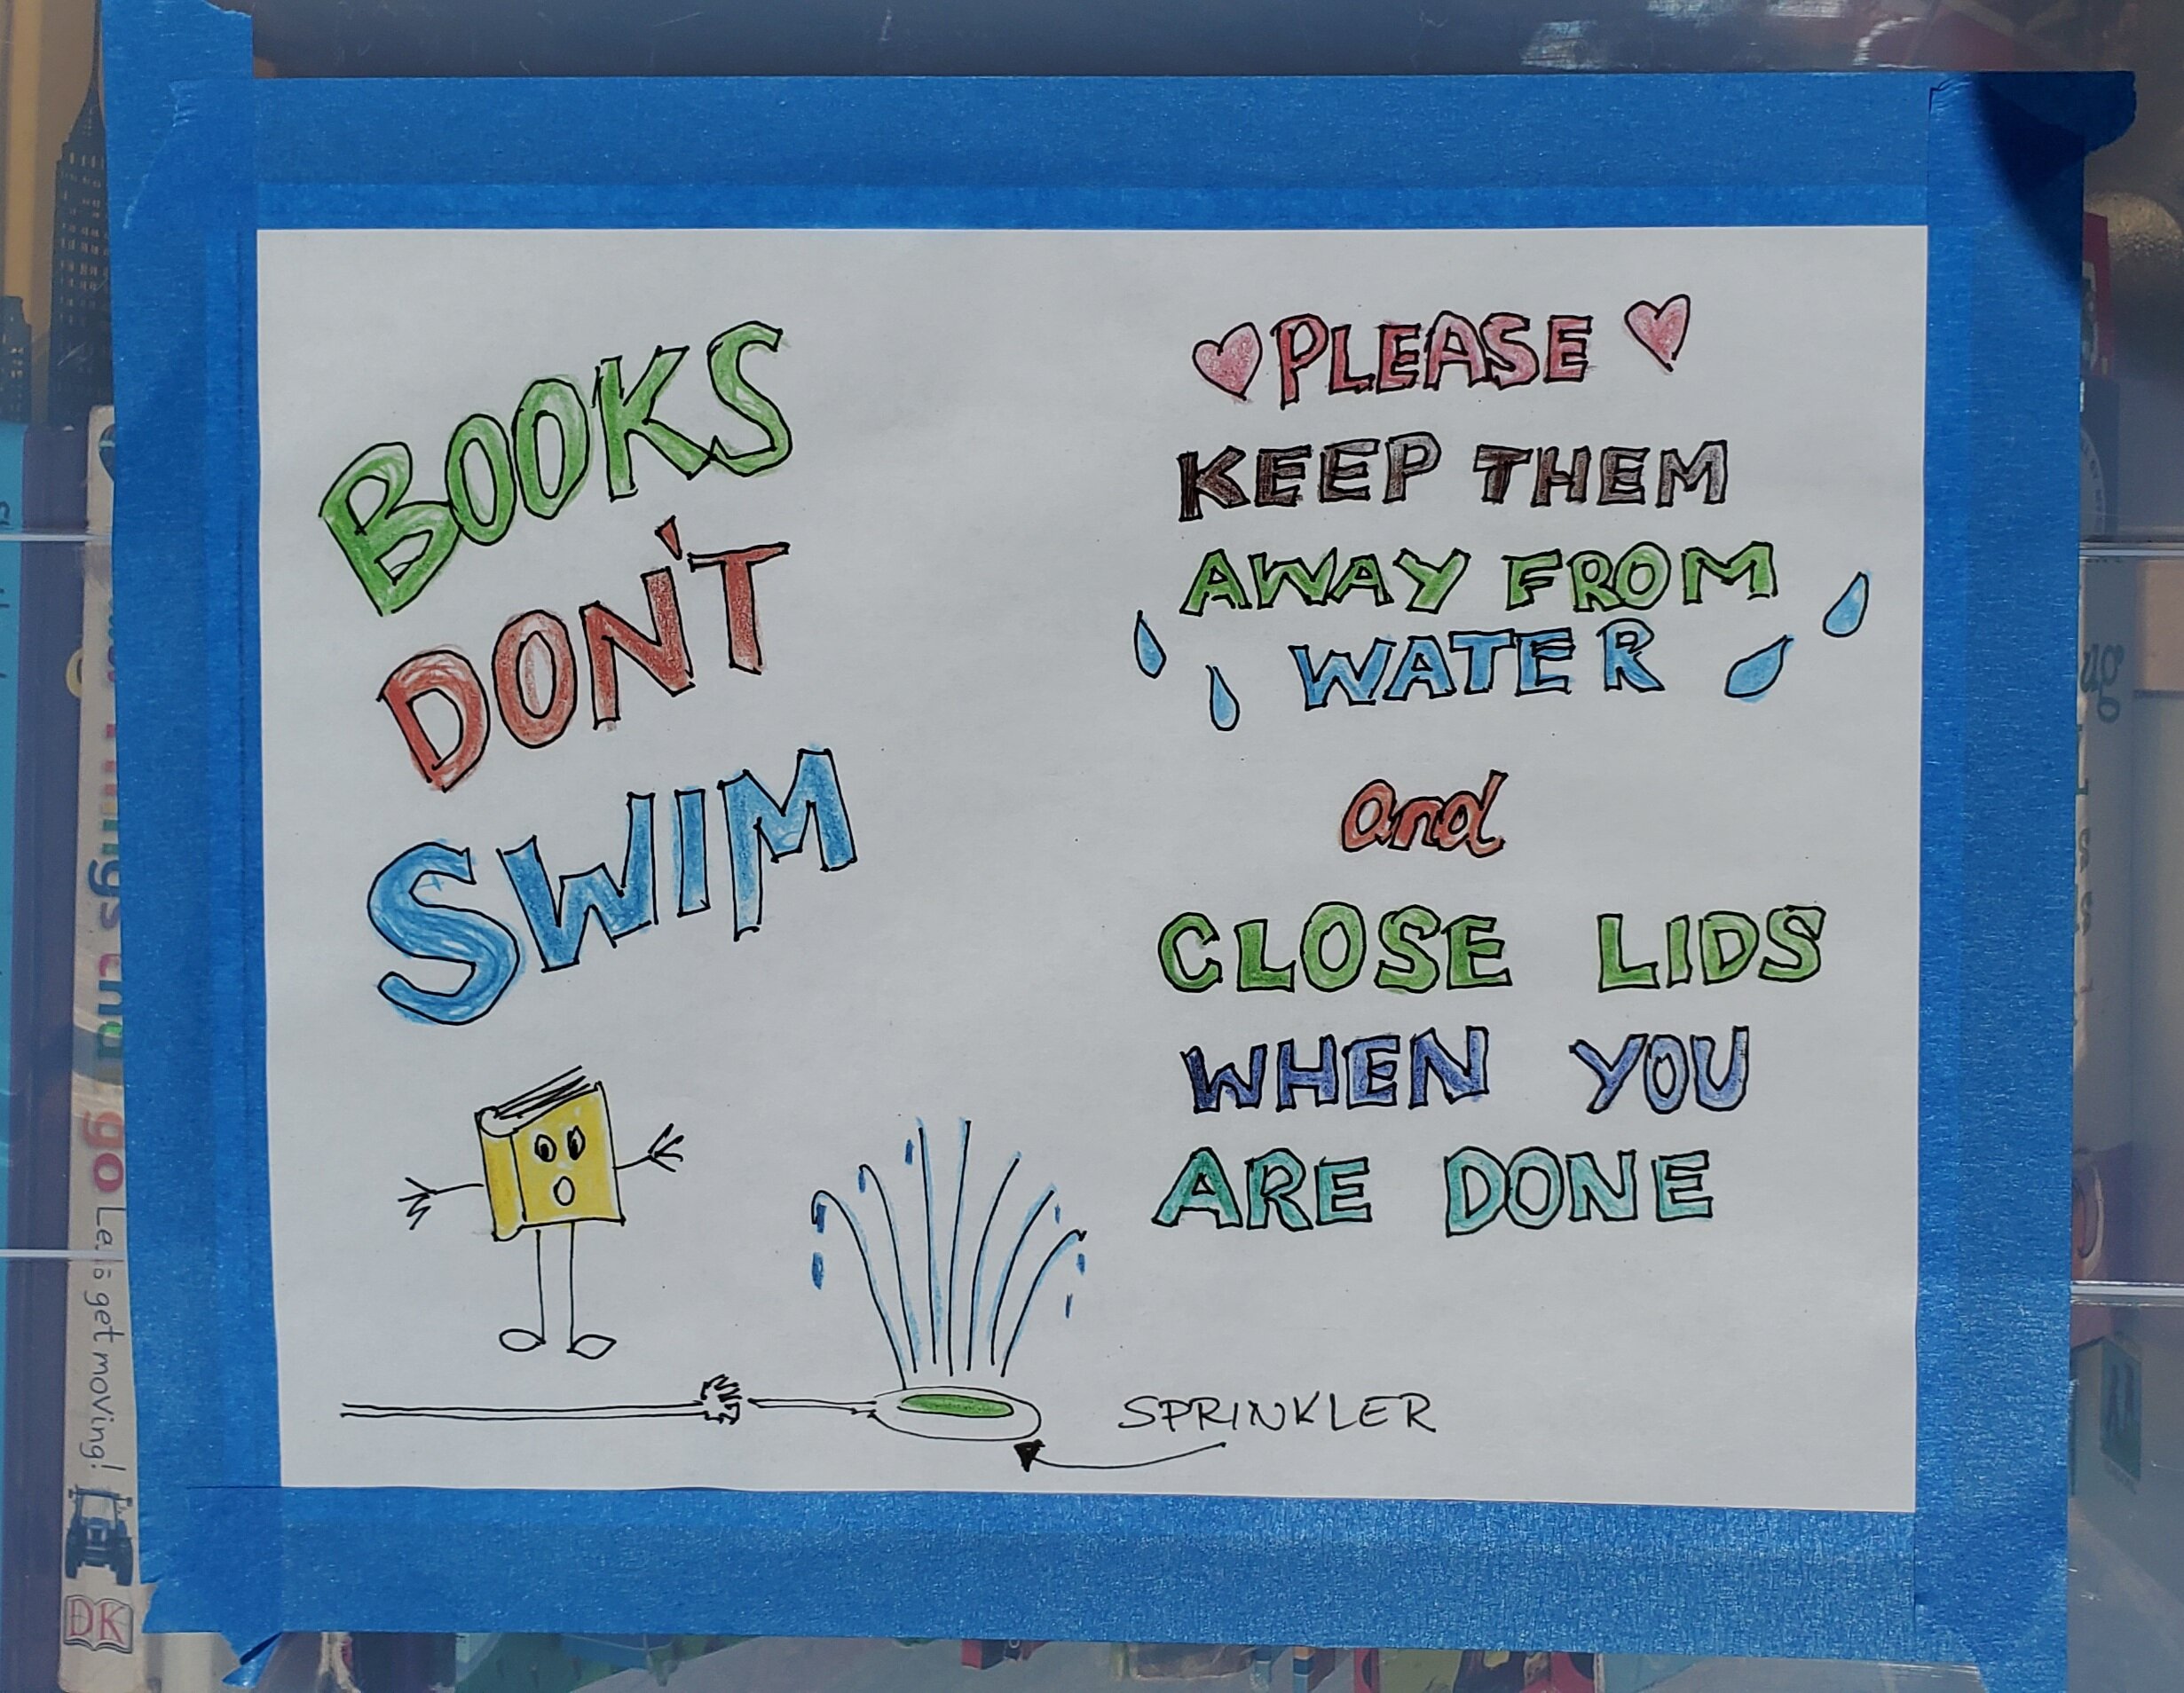 BOOKS
DON'T
SWIM
PLEASE
KEEP THEM
AWAY FROM
WATER
and
CLOSE LIDS
WHEN YOU
ARE DONE
SPRINKLER
go Let's get moving!
DK